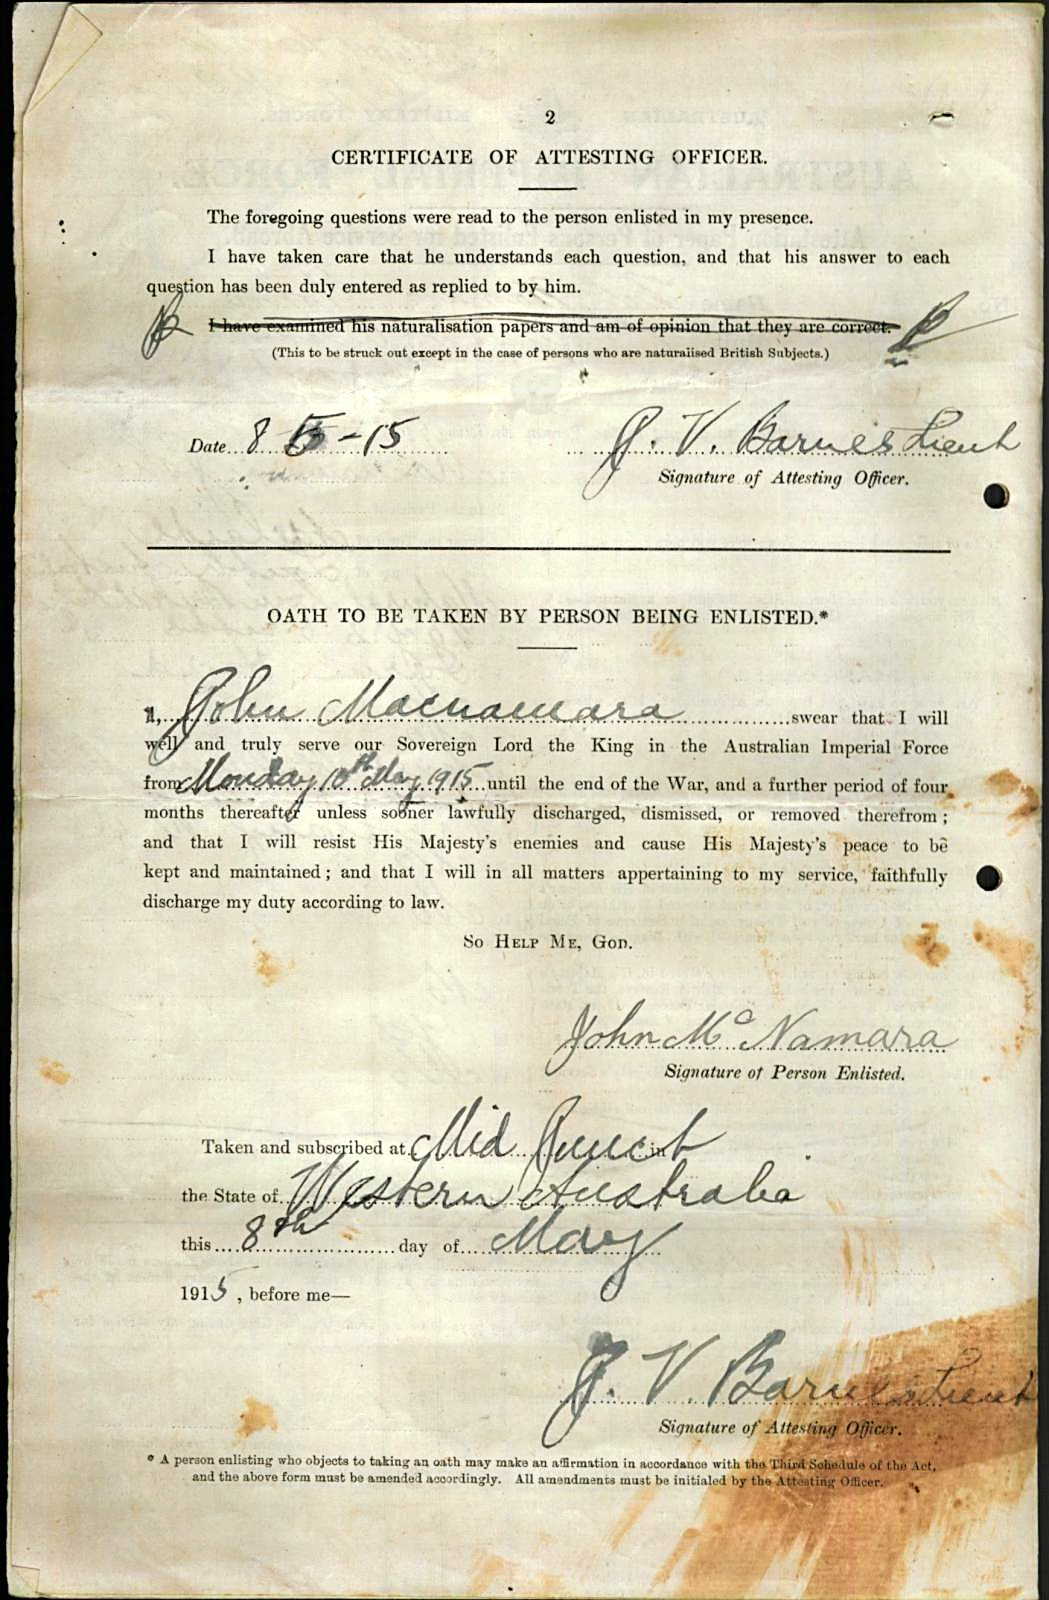 2
CERTIFICATE OF ATTESTING OFFICER.
The foregoing questions were read to the person enlisted in my presence.
I have taken care that he understands each question, and that his answer to each
question has been duly entered as replied to by him.
I have examined his naturalisation papers and am of opinion that they are correct.
(This to be struck out except in the case of persons who are naturalised British Subjects.)
Date 8 5-15 J. V. Barnes Lieut
Signature of Attesting Officer.
OATH TO BE TAKEN BY PERSON BEING ENLISTED.*
I, John Macnamara swear that I will
well and truly serve our Sovereign Lord the King in the Australian Imperial Force
from Monday 10th May 1915 until the end of the War, and a further period of four
months thereafter unless sooner lawfully discharged, dismissed, or removed therefrom;
and that I will resist His Majesty's enemies and cause His Majesty's peace to be
kept and maintained; and that I will in all matters appertaining to my service, faithfully
discharge my duty according to law.
So Help Me, God.
John Mc Namara
Signature of Person Enlisted.
Taken and subscribed at Mid Junct in
the State of Western Australia
this 8th day of May
1915, before me—
J. V. Barnes Lieut
Signature of Attesting Officer.
* A person enlisting who objects to taking an oath may make an affirmation in accordance with the Third Schedule of the Act,
and the above form must be amended accordingly. All amendments must be initialed by the Attesting Officer.